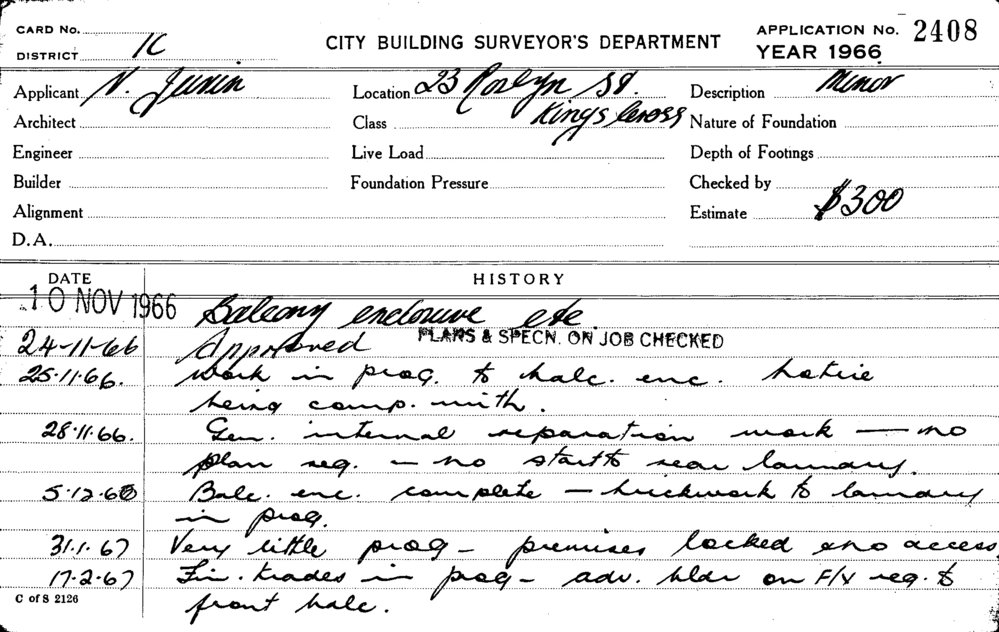 CARD No.
DISTRICT 1C
CITY BUILDING SURVEYOR'S DEPARTMENT
APPLICATION No. 2408
YEAR 1966
Applicant N.
Location 23 Roslyn St.
Description Minor
Architect
Class Kings Cross
Nature of Foundation
Engineer
Live Load
Depth of Footings
Builder
Foundation Pressure
Checked by
Alignment
Estimate $300
D.A.
DATE
HISTORY
10 NOV 1966 Balcony enclosure etc.
24-11-66 Approved PLANS & SPECN. ON JOB CHECKED
25.11.66. Work in prog. to balc. enc. Notice
being comp. with.
28.11.66. Gen. internal reparation work — no
plan req. — no start to rear laundry.
5.12.66 Balc. enc. complete — brickwork to laundry
in prog.
31.1.67 Very little prog — premises locked & no access
17.2.67 Fin. trades in prog — adv. bldr on F/V req. to
front balc.
C of S 2126